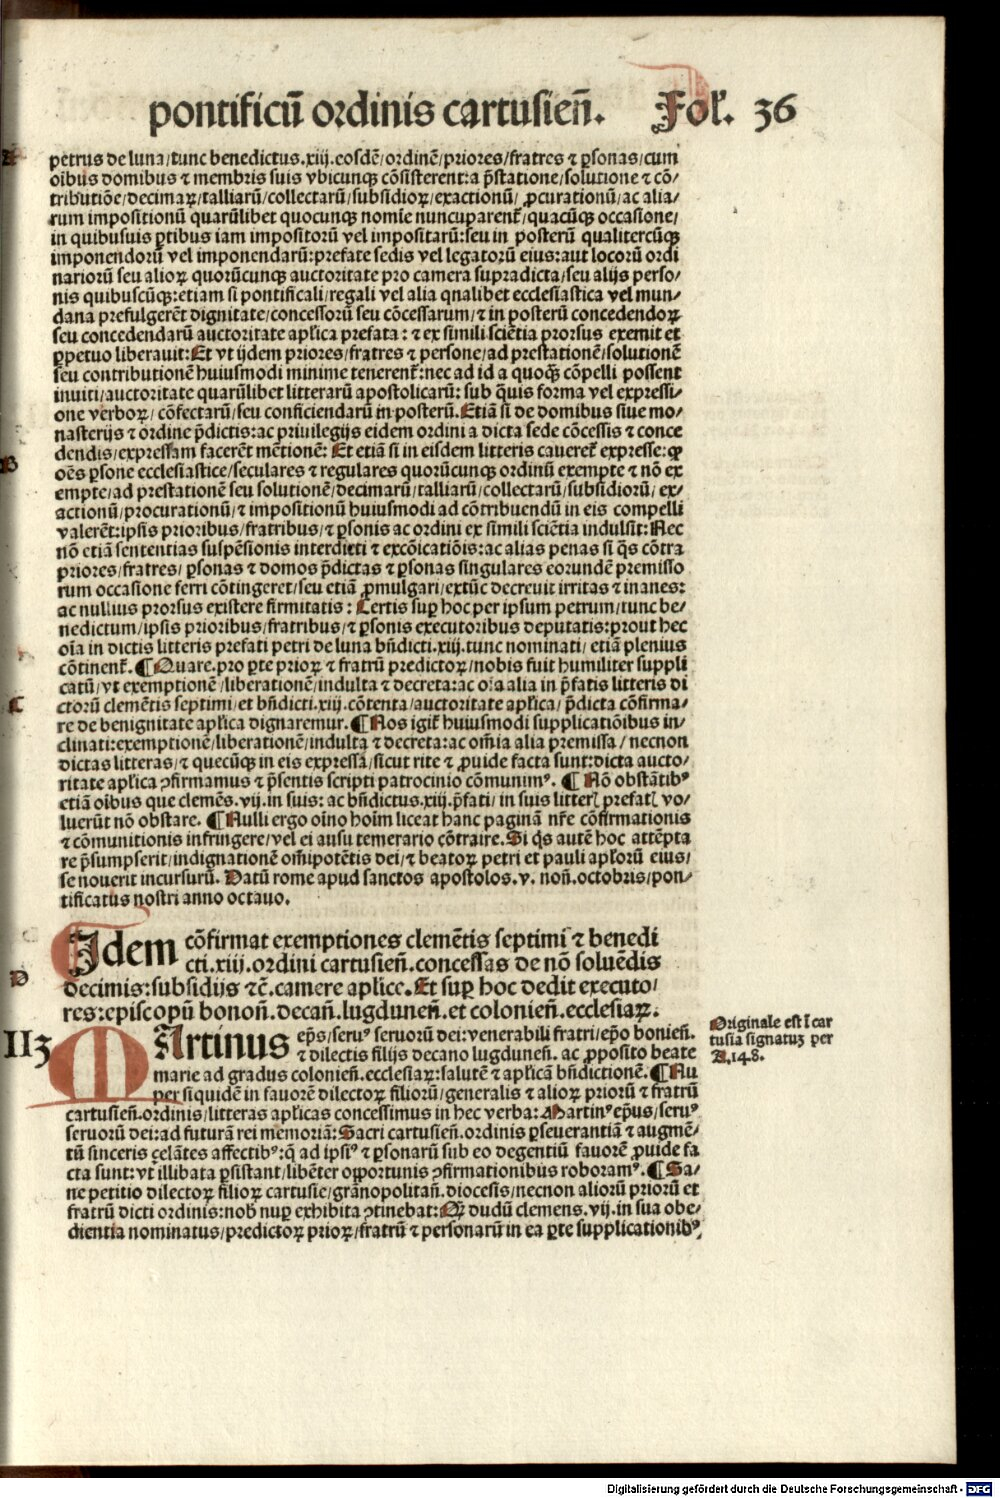 pontificū ordinis cartusieñ. Fol. 36
petrus de luna/tunc benedictus.xiii.eosdē/ordinē/priores/fratres ⁊ ꝑsonas/cum
oībus domibus ⁊ membris suis vbicunqꝫ cōsisterent:a p̄statione/solutione ⁊ cō/
tributiōe/decimaꝝ/talliarū/collectarū/subsidioꝝ/exactionū/ ꝓcurationū/ac alia/
rum impositionū quarūlibet quocunqꝫ nomīe nuncuparent̄/quacūqꝫ occasione/
in quibusuis ꝑtibus iam impositorū vel impositarū:seu in posterū qualitercūqꝫ
imponendorū vel imponendarū:prefate sedis vel legatorū eius:aut locorū ordi
nariorū seu alioꝝ quorūcunqꝫ auctoritate pro camera supradicta/seu alijs perso/
nis quibuscūqꝫ:etiam si pontificali/regali vel alia qnalibet ecclesiastica vel mun/
dana prefulgerēt dignitate/concessorū seu cōcessarum/⁊ in posterū concedendoꝝ
seu concedendarū auctoritate aplica prefata: ⁊ ex simili sciētia prorsus exemit et
ꝑpetuo liberauit:Et vt ijdem priores/fratres ⁊ persone/ad prestationē/solutionē
seu contributionē huiusmodi minime tenerent̄:nec ad id a quoqꝫ cōpelli possent
inuiti/auctoritate quarūlibet litterarū apostolicarū: sub q̄uis forma vel expressi/
one verboꝝ/ cōfectarū/seu conficiendarū in posterū.Etiā si de domibus siue mo/
nasterijs ⁊ ordine p̄dictis:ac priuilegijs eidem ordini a dicta sede cōcessis ⁊ conce
dendis/expressam facerēt mētionē: Et etiā si in eisdem litteris caueret̄ expresse:ꝙ
oēs ꝑsone ecclesiastice/seculares ⁊ regulares quorūcunqꝫ ordinū exempte ⁊ nō ex
empte/ad prestationē seu solutionē/decimarū/talliarū/collectarū/subsidiorū/ ex/
actionū/procurationū/⁊ impositionū huiusmodi ad cōtribuendū in eis compelli
valerēt:ipsis prioribus/fratribus/⁊ ꝑsonis ac ordini ex simili sciētia indulsit:Nec
nō etiā sententias suspēsionis interdicti ⁊ excōicatiōis:ac alias penas si q̄s cōtra
priores/fratres/ ꝑsonas ⁊ domos p̄dictas ⁊ ꝑsonas singulares eorundē premisso
rum occasione ferri cōtingeret/seu etiā ꝓmulgari/extūc decreuit irritas ⁊ inanes:
ac nullius prorsus existere firmitatis: Certis suꝑ hoc per ipsum petrum/tunc be/
nedictum/ipsis prioribus/fratribus/⁊ ꝑsonis executoribus deputatis:prout hec
oīa in dictis litteris prefati petri de luna bñdicti.xiij.tunc nominati/ etiā plenius
cōtinent̄.¶Quare.pro ꝑte prioꝝ ⁊ fratrū predictoꝝ/nobis fuit humiliter suppli
catū/vt exemptionē/liberationē/indulta ⁊ decreta:ac oīa alia in p̄fatis litteris di
ctorū clemētis septimi/et bñdicti.xij.cōtenta/auctoritate aplica/p̄dicta cōfirma/
re de benignitate aplica dignaremur.¶Nos igit̄ huiusmodi supplicatiōibus in/
clinati:exemptionē/liberationē/indulta ⁊ decreta:ac om̄ia alia premissa/necnon
dictas litteras/⁊ quecūqꝫ in eis expressa/sicut rite ⁊ ꝓuide facta sunt:dicta aucto/
ritate aplica ꝯfirmamus ⁊ p̄sentis scripti patrocinio cōmunimꝰ. ¶ Nō obstātibꝰ
etiā oībus que clemēs.vij.in suis: ac bñdictus.xiij.p̄fati/in suis litterꝭ prefatꝭ vo/
luerūt nō obstare. ¶Nulli ergo oīno hoīm liceat hanc paginā nr̄e cōfirmationis
⁊ cōmunitionis infringere/vel ei ausu temerario cōtraire.Si q̇s autē hoc attēpta
re p̄sumpserit/indignationē om̄ipotētis dei/⁊ beatoꝝ petri et pauli aplorū eius/
se nouerit incursurū. Datū rome apud sanctos apostolos.v. noñ.octobris/pon/
tificatus nostri anno octauo.
Idem cōfirmat exemptiones clemētis septimi ⁊ benedi
cti.xiii.ordini cartusieñ.concessas de nō soluēdis
decimis:subsidijs ⁊c̄.camere aplice.Et suꝑ hoc dedit executo/
res:episcopū bonoñ.decañ.lugduneñ.et colonieñ.ecclesiaꝝ.
II3 MArtinus ep̄s/seruꝰ seruorū dei:venerabili fratri/ep̄o bonieñ.
⁊ dilectis filijs decano lugduneñ. ac ꝓposito beate
marie ad gradus colonieñ.ecclesiaꝝ:salutē ⁊ aplicā bñdictionē.¶Nu
per siquidē in fauorē dilectoꝝ filiorū/generalis ⁊ alioꝝ priorū ⁊ fratrū
cartusieñ.ordinis/litteras aplicas concessimus in hec verba:Martinꝰ ep̄us/seruꝰ
seruorū dei:ad futurā rei memoriā:Sacri cartusieñ.ordinis ꝑseuerantiā ⁊ augmē/
tū sinceris celātes affectibꝰ:q̄ ad ipsiꝰ ⁊ ꝑsonarū sub eo degentiū fauorē ꝓuide fa
cta sunt:vt illibata ꝑsistant/libēter oportunis ꝯfirmationibus roboramꝰ.¶Sa/
ne petitio dilectoꝝ filioꝝ cartusie/granopolitañ.diocesis/necnon aliorū priorū et
fratrū dicti ordinis:nob̄ nuꝑ exhibita ꝯtinebat:Qꝛ dudū clemens.vij.in sua obe/
dientia nominatus/predictoꝝ prioꝝ/fratrū ⁊ personarū in ea ꝑte supplicationibꝰ,
A
B
C
D
Originale est ī car
tusia signatuꝫ per
A.148.
Digitalisierung gefördert durch die Deutsche Forschungsgemeinschaft - DFG